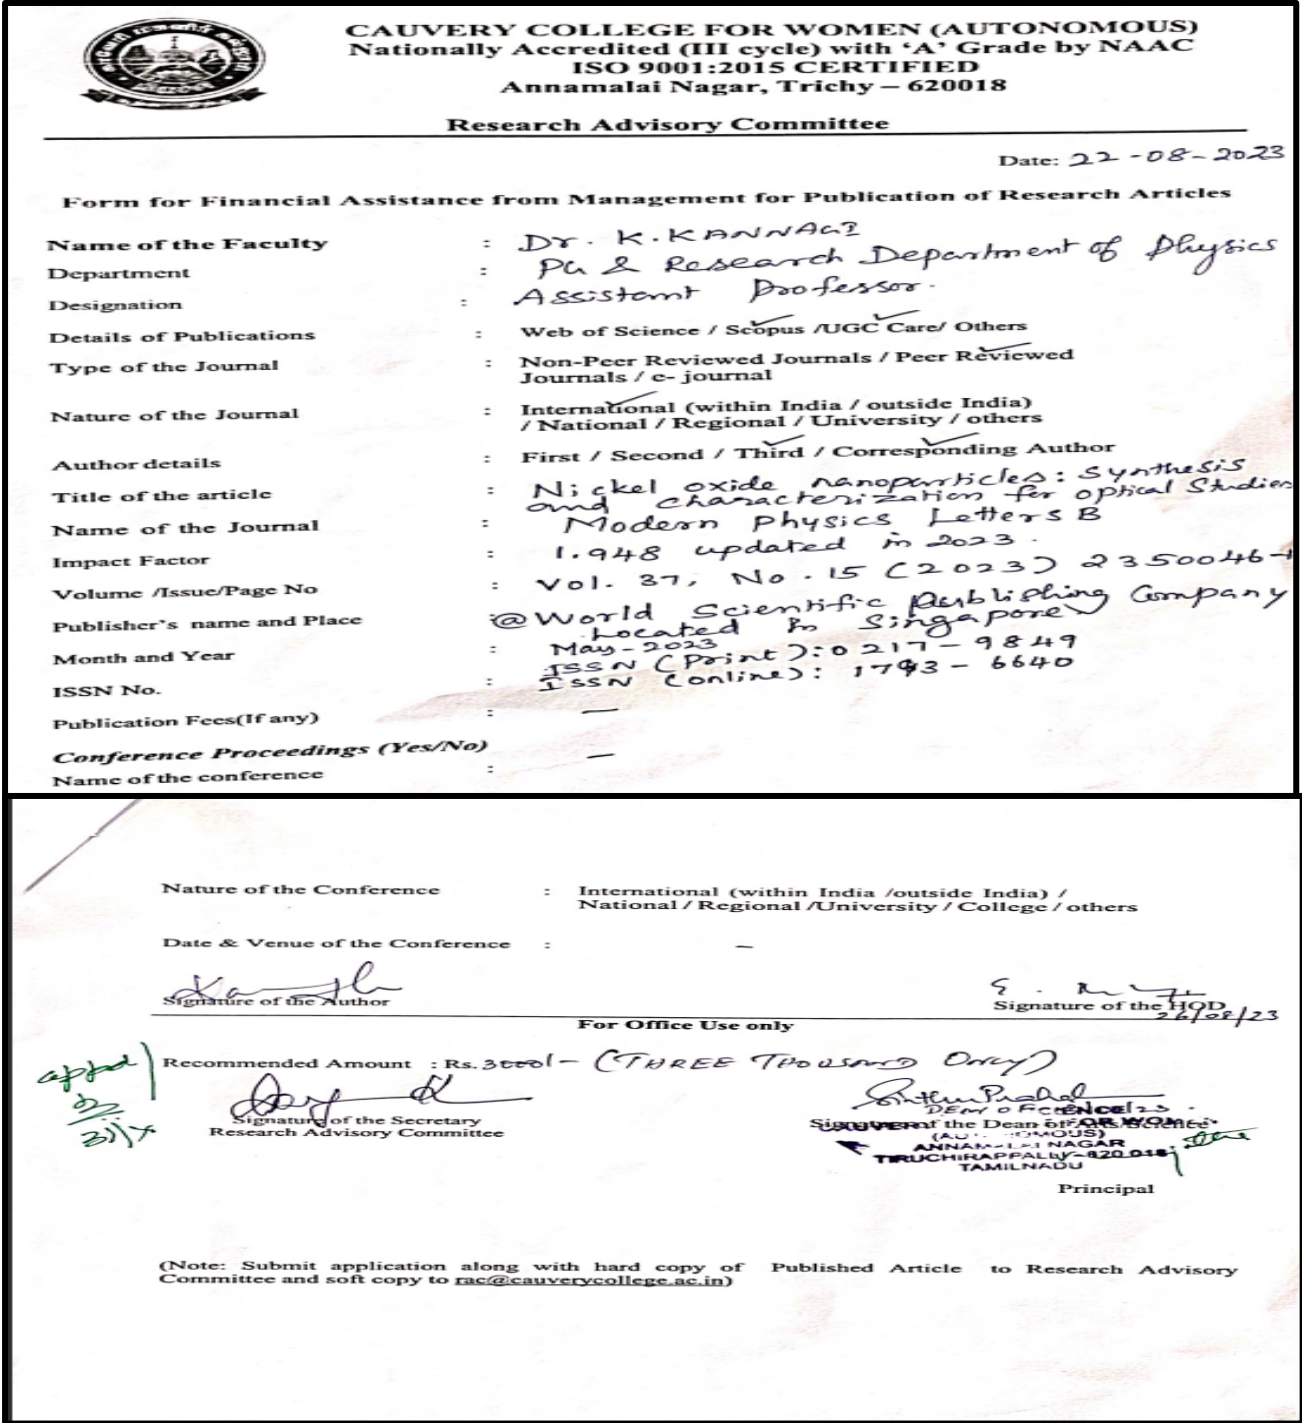 CAUVERY COLLEGE FOR WOMEN (AUTONOMOUS)
Nationally Accredited (III cycle) with ‘A’ Grade by NAAC
ISO 9001:2015 CERTIFIED
Annamalai Nagar, Trichy – 620018
Research Advisory Committee
Date: 22-08-2023
Form for Financial Assistance from Management for Publication of Research Articles
Name of the Faculty : Dr. K. KANNAGI
Department : PG & Research Department of Physics
Designation : Assistant Professor.
Details of Publications : Web of Science / Scopus /UGC Care/ Others
Type of the Journal : Non-Peer Reviewed Journals / Peer Reviewed
Journals / e- journal
Nature of the Journal : International (within India / outside India)
/ National / Regional / University / others
Author details : First / Second / Third / Corresponding Author
Title of the article : Nickel oxide nanoparticles: Synthesis
and characterization for optical Studies
Name of the Journal : Modern Physics Letters B
Impact Factor : 1.948 updated in 2023.
Volume /Issue/Page No : Vol. 37, No. 15 (2023) 2350046-1
Publisher's name and Place : @World Scientific Publishing Company
Located in Singapore
Month and Year : May-2023
ISSN (Print): 0217-9849
ISSN No. : ISSN (online): 1793-6640
Publication Fees(If any) : —
Conference Proceedings (Yes/No)
Name of the conference : —
Nature of the Conference : International (within India /outside India) /
National / Regional /University / College / others
Date & Venue of the Conference : –
Signature of the Author
Signature of the HOD
26/08/23
For Office Use only
Recommended Amount : Rs. 3000/- (THREE THOUSAND ONLY)
Signature of the Secretary
Research Advisory Committee
Signature of the Dean of Arts/Science
ANNAMALAI NAGAR
TIRUCHIRAPPALLI-620 018
TAMILNADU
Principal
(Note: Submit application along with hard copy of Published Article to Research Advisory
Committee and soft copy to rac@cauverycollege.ac.in)